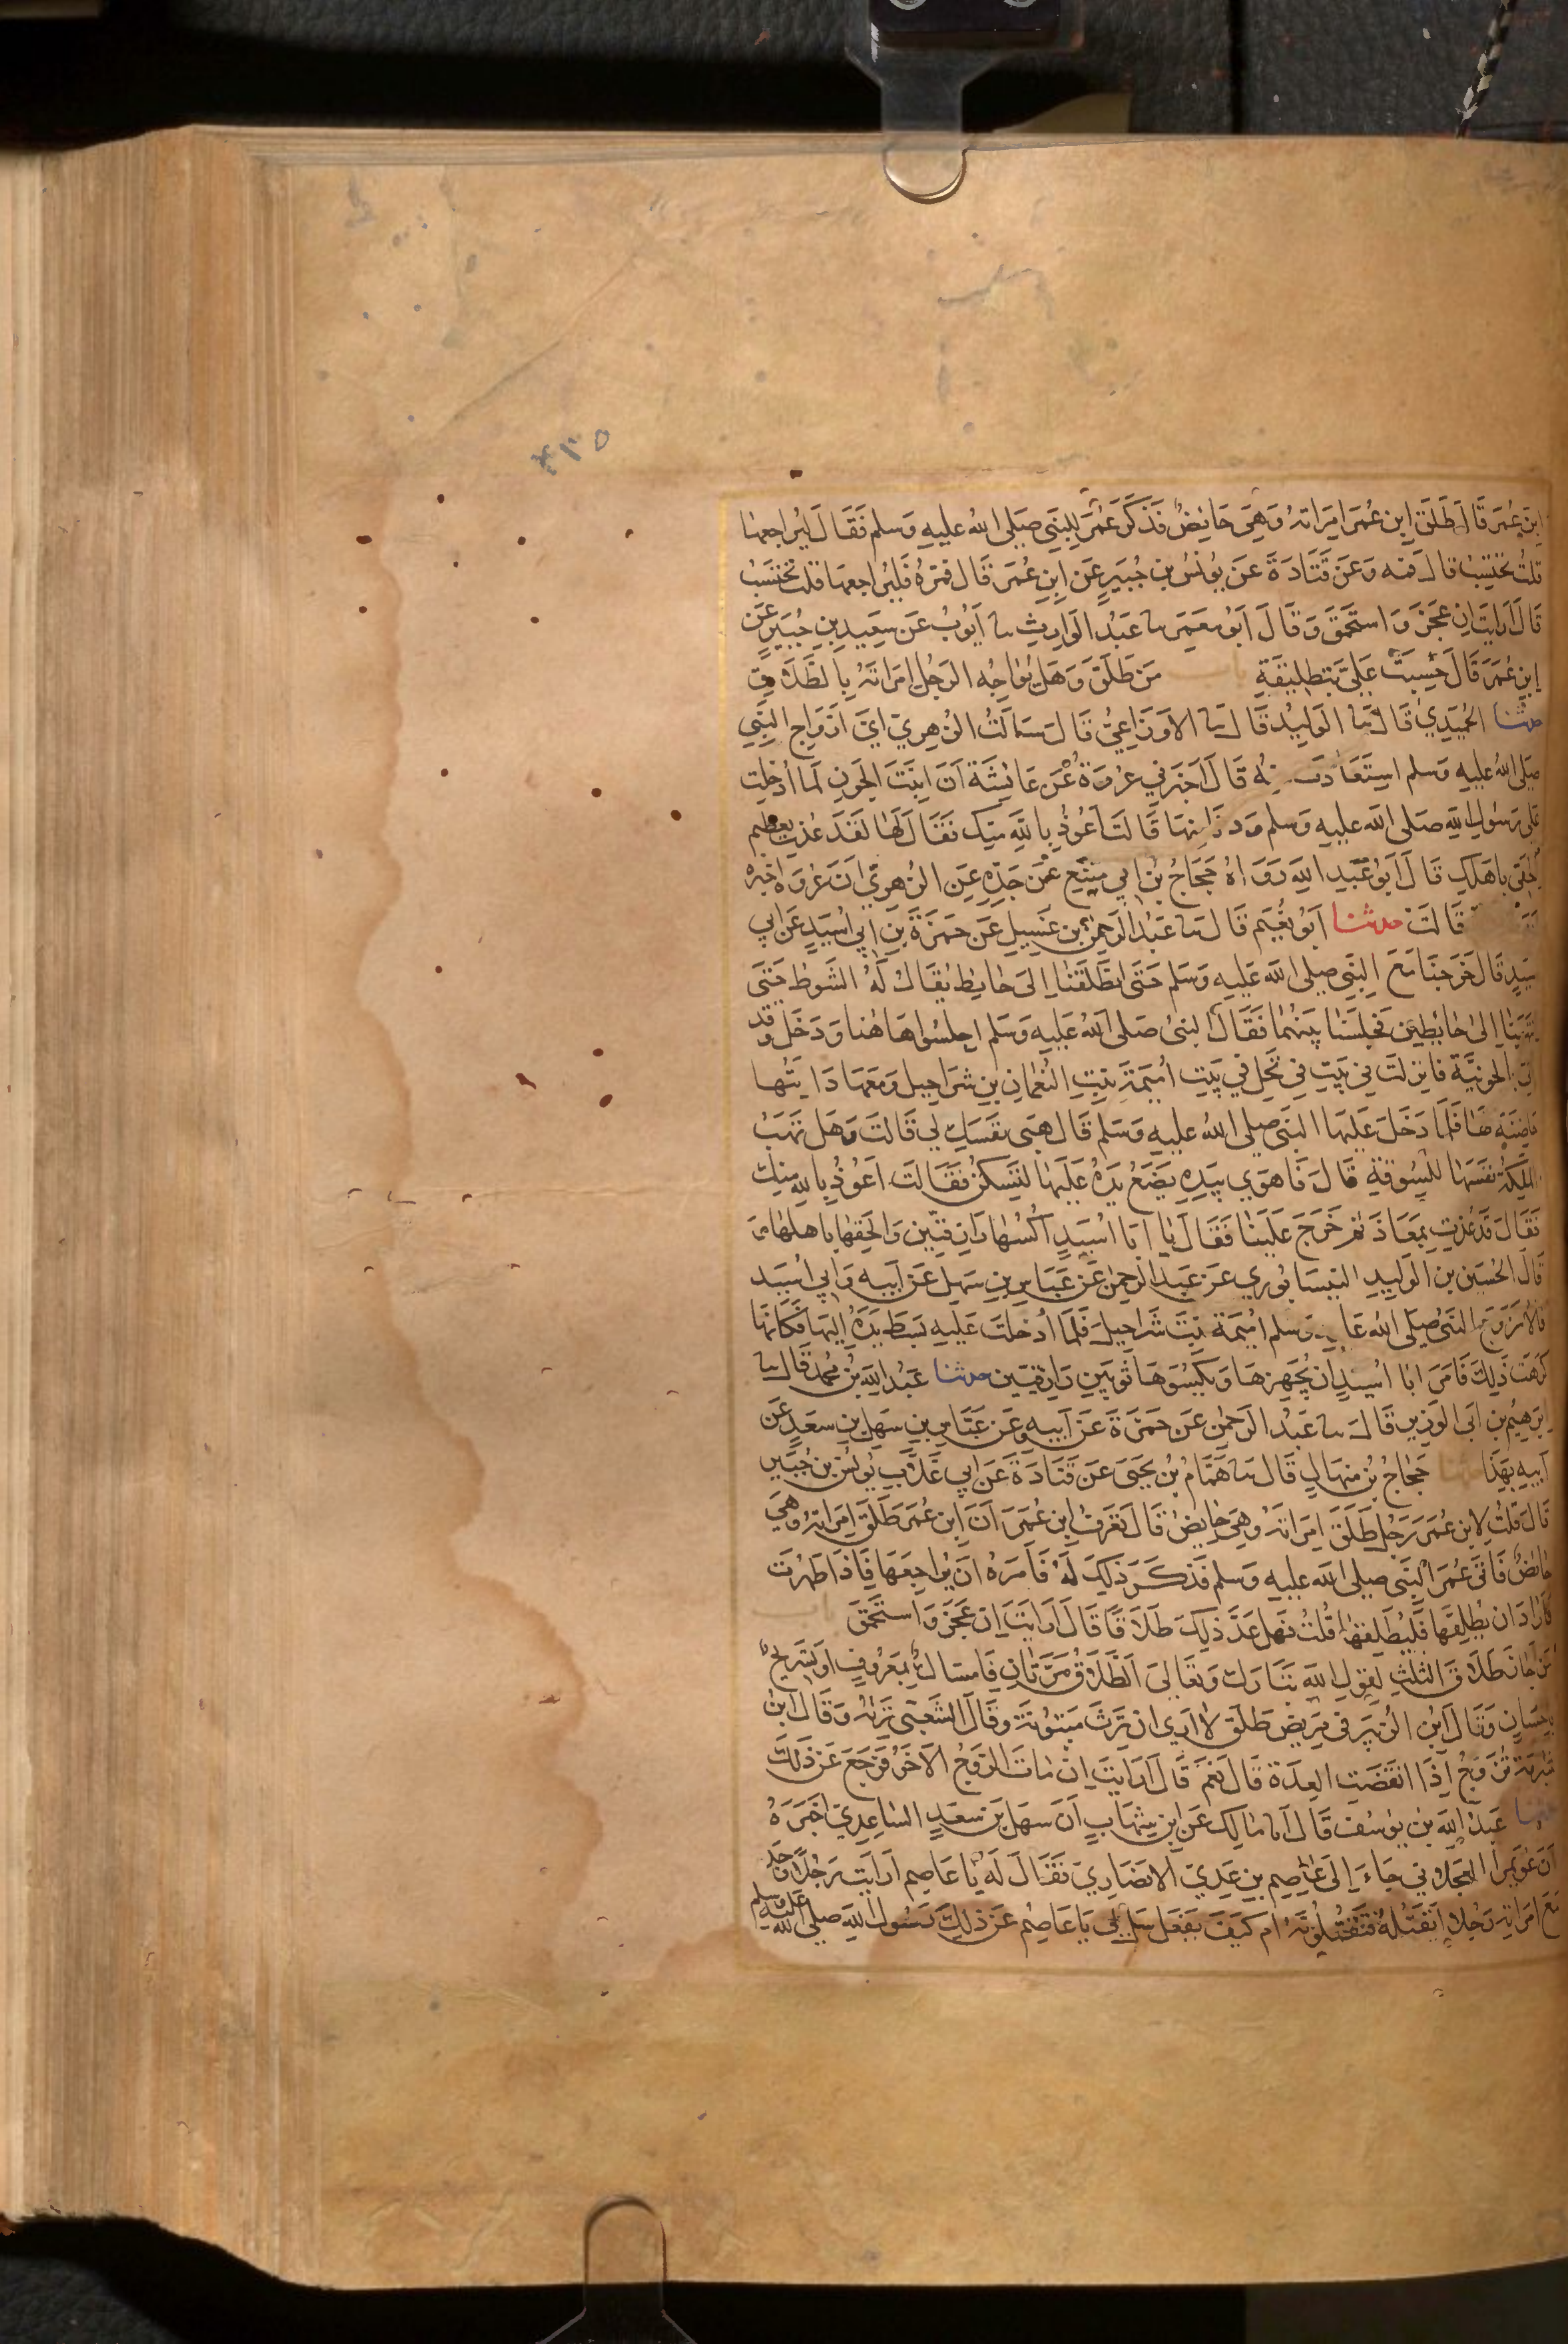 ٥٦٤
ابن عمر قال طلق ابن عمر امراته وهي حائض فذكر عمر للنبي صلى الله عليه وسلم فقال ليراجعها
قلت تحتسب قال فمه وعن قتادة عن يونس بن جبير عن ابن عمر قال فمره فليراجعها قلت تحتسب
قال ارايت ان عجز واستحمق وقال ابو معمر ثنا عبد الوارث ثنا ايوب عن سعيد بن جبير عن
ابن عمر قال حسبت علي بتطليقة باب من طلق وهل يواجه الرجل امراته بالطلاق
حدثنا الحميدي قال ثنا الوليد قال ثنا الاوزاعي قال سالت الزهري اي ازواج النبي
صلى الله عليه وسلم استعاذت منه قال اخبرني عروة عن عائشة ان ابنت الجون لما ادخلت
على رسول الله صلى الله عليه وسلم ودنا منها قالت اعوذ بالله منك فقال لها لقد عذت بعظيم
الحقي باهلك قال ابو عبد الله رواه حجاج بن ابي منيع عن جده عن الزهري ان عروة اخبره
قالت حدثنا ابو نعيم قال ثنا عبد الرحمن بن غسيل عن حمزة بن ابي اسيد عن ابي
سيد قال خرجنا مع النبي صلى الله عليه وسلم حتى انطلقنا الى حايط يقال له الشوط حتى
انتهينا الى حايطين فجلسنا بينهما فقال النبي صلى الله عليه وسلم اجلسوا هاهنا ودخل وقد
اتي بالجونية فانزلت في بيت في نخل في بيت اميمة بنت النعمان بن شراحيل ومعها دايتها
حاضنة لها فلما دخل عليها النبي صلى الله عليه وسلم قال هبي نفسك لي قالت وهل تهب
الملكة نفسها للسوقة قال فاهوى بيده يضع يده عليها لتسكن فقالت اعوذ بالله منك
فقال قد عذت بمعاذ ثم خرج علينا فقال يا ابا اسيد اكسها رازقيين والحقها باهلها
قال الحسين بن الوليد النيسابوري عن عبد الرحمن عن عباس بن سهل عن ابيه وابي اسيد
قالا تزوج النبي صلى الله عليه وسلم اميمة بنت شراحيل فلما ادخلت عليه بسط يده اليها فكانها
كرهت ذلك فامر ابا اسيد ان يجهزها ويكسوها ثوبين رازقيين حدثنا عبد الله بن محمد قال ثنا
ابرهيم بن ابي الوزير قال ثنا عبد الرحمن عن حمزة عن ابيه وعن عباس بن سهل بن سعد عن
ابيه بهذا حدثنا حجاج بن منهال قال ثنا همام بن يحيى عن قتادة عن ابي غلاب يونس بن جبير
قال قلت لابن عمر رجل طلق امراته وهي حايض قال تعرف ابن عمر ان ابن عمر طلق امراته وهي
حايض فاتى عمر النبي صلى الله عليه وسلم فذكر ذلك له فامره ان يراجعها فاذا طهرت
فاراد ان يطلقها فليطلقها قلت فهل عد ذلك طلاقا قال ارايت ان عجز واستحمق باب
من اجاز طلاق الثلث لقول الله تبارك وتعالى الطلاق مرتان فامساك بمعروف او تسريح
باحسان وقال ابن الزبير في مريض طلق لا ارى ان ترث مبتوتة وقال الشعبي ترثه وقال ابن
شبرمة تزوج اذا انقضت العدة قال نعم قال ارايت ان مات الزوج الاخر فرجع عن ذلك
حدثنا عبد الله بن يوسف قال انا مالك عن ابن شهاب ان سهل بن سعد الساعدي اخبره
ان عويمرا العجلاني جاء الى عاصم بن عدي الانصاري فقال له يا عاصم ارايت رجلا وجد
مع امراته رجلا ايقتله فتقتلونه ام كيف يفعل سل لي يا عاصم عن ذلك رسول الله صلى الله عليه وسلم